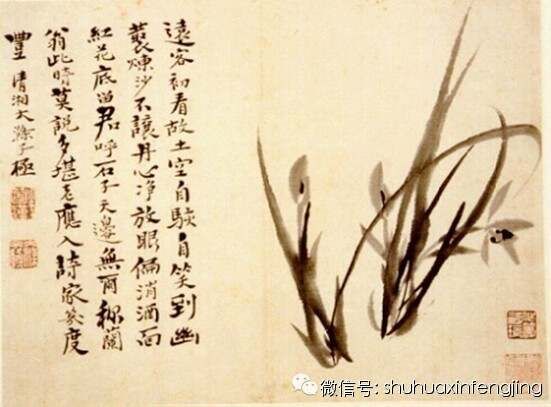 遠客初看故土空自驗自笑到幽
藂煉沙不讓丹心净放眼偏消酒面
紅花底留君呼石子天邊無爾稱蘭
翁此時莫說多堪老應入詩家幾度
豐 清湘大滌子極
微信号: shuhuaxinfengjing